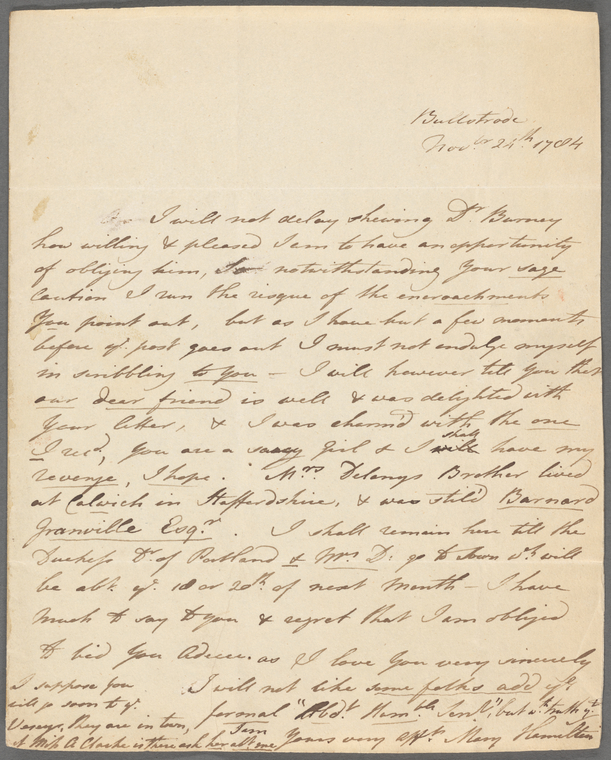 Bullstrode
Novbr 24th 1784
I will not delay shewing Dr Burney
how willing & pleased I am to have an opportunity
of obliging him, notwithstanding Your sage
caution I run the risque of the encroachments
You point out, but as I have but a few moments
before ye post goes out I must not indulge myself
in scribbling to You – I will however tell You that
our dear friend is well & was delighted with
Your letter, & I was charm'd with the one
I recd, You are a saucy Girl & I shall have my
revenge, I hope. Mrs Delanys Brother lived
at Calwich in Staffordshire, & was stil'd Barnard
Granville Esqr. I shall remain here till the
Duchess Dr of Portland & Mrs D: go to town wh will
be abt ye 18 or 20th of next month – I have
much to say to You & regret that I am obliged
to bid You Adieu. as I love You very sincerely
I will not like some folks add ye
formal "Obdt Humble Servt", but wth truth yt
I am Yours very affly Mary Hamilton
I suppose You
will go soon to ye
Veseys, they are in town,
if Miss A Clarke is there ask her abt me